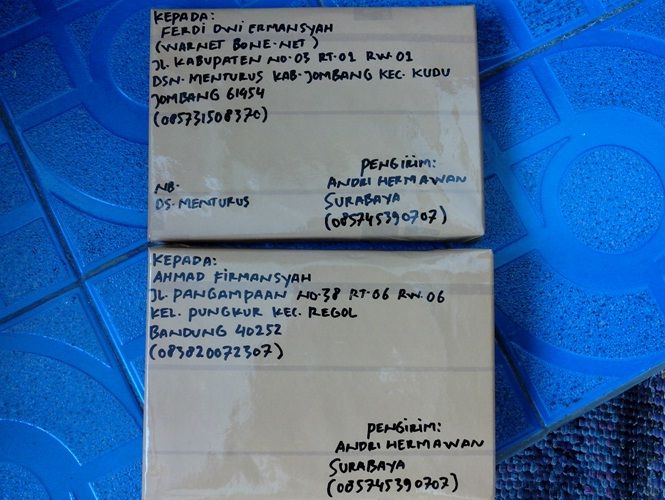 KEPADA:
FERDI DWI ERMANSYAH
(WARNET BONE-NET)
JL. KABUPATEN NO.03 RT.01 RW.01
DSN. MENTURUS KAB. JOMBANG KEC. KUDU
JOMBANG 61454
(085731508370)
PENGIRIM:
ANDRI HERMAWAN
SURABAYA
(085745390707)
NB.
DS. MENTURUS
KEPADA:
AHMAD FIRMANSYAH
JL. PANGAMPAAN NO.38 RT.06 RW.06
KEL. PUNGKUR KEC. REGOL
BANDUNG 40252
(083820072307)
PENGIRIM:
ANDRI HERMAWAN
SURABAYA
(085745390707)